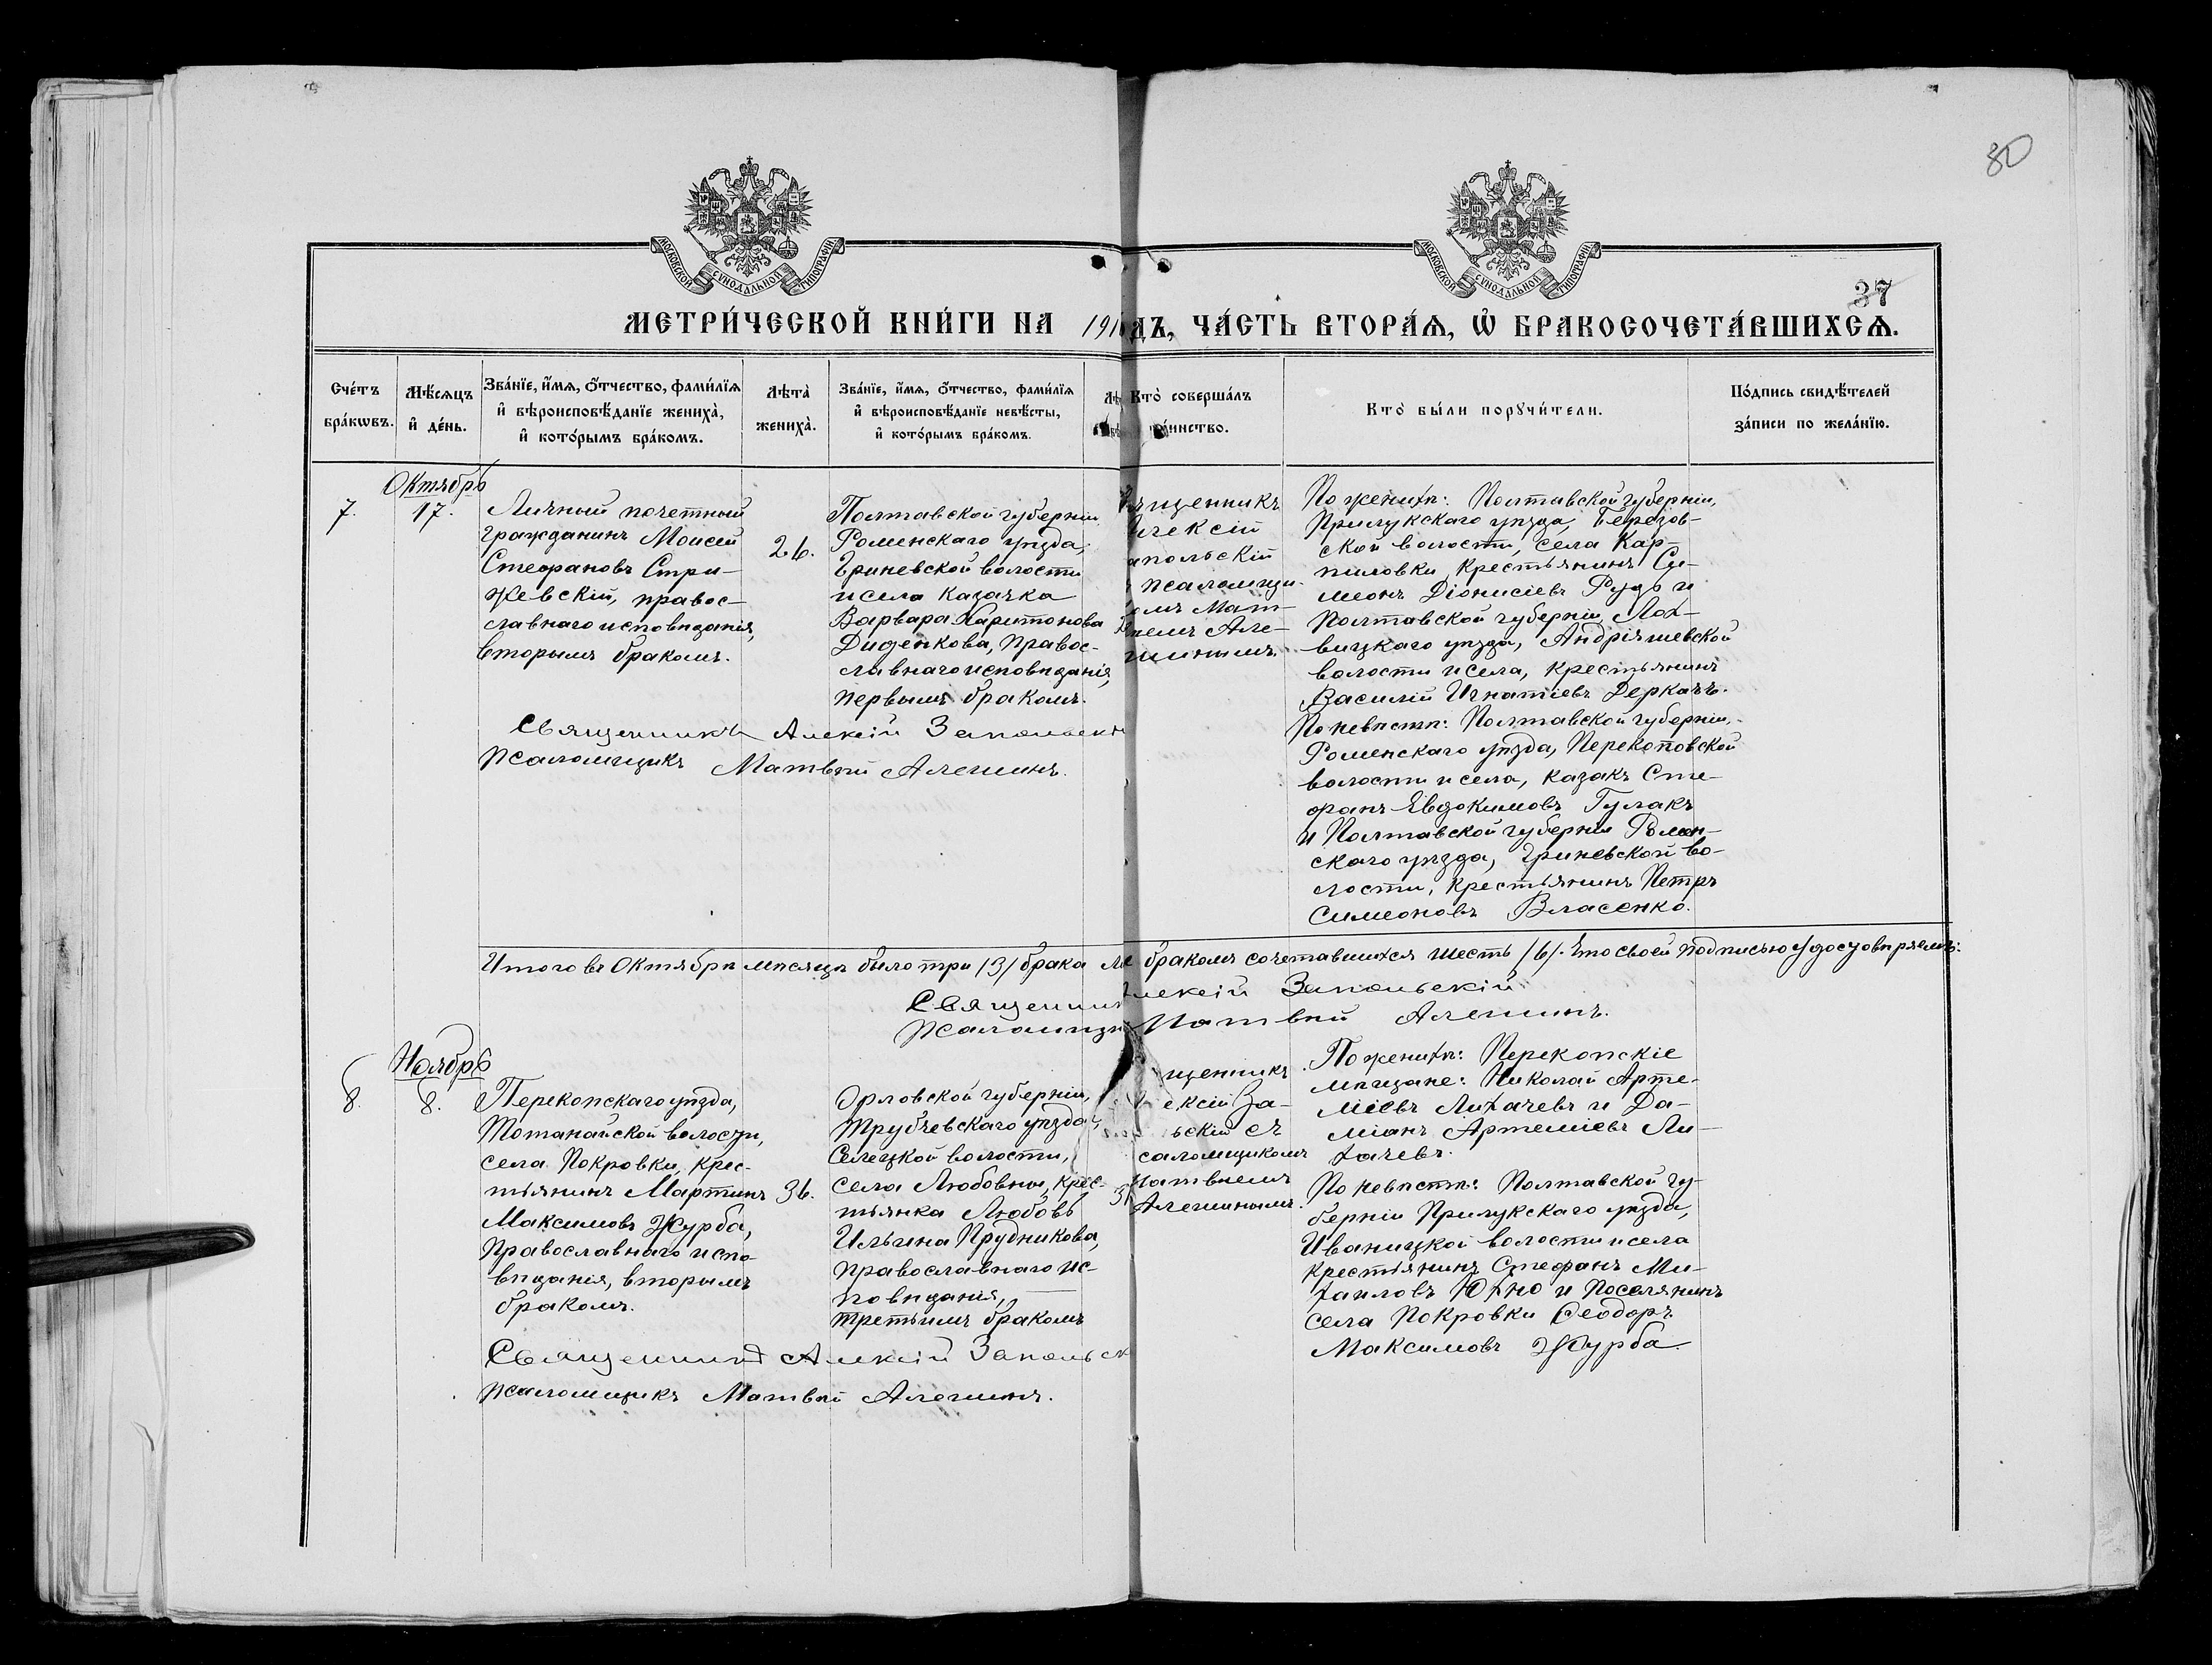 80
МОСКОВСКОЙ СУНОДАЛЬНОЙ ТИПОГРАФІИ
МОСКОВСКОЙ СУНОДАЛЬНОЙ ТИПОГРАФІИ
37
МЕТРИ́ЧЕСКОЙ КНИ́ГИ НА 191 ДЪ, ЧА́СТЬ ВТОРА́Ѧ, Ѡ҆ БРАКОСОЧЕТА́ВШИХСѦ.
Сче́тъ
бра́кѡвъ.
Мѣ́сѧцъ
и҆ де́нь.
Зва́нїе, и҆́мѧ, ѻ҆́тчество, фами́лїѧ
и҆ вѣроисповѣ́данїе жениха̀,
и҆ кото́рымъ бра́комъ.
Лѣта̀
жениха̀.
Зва́нїе, и҆́мѧ, ѻ҆́тчество, фами́лїѧ
и҆ вѣроисповѣ́данїе невѣ́сты,
и҆ кото́рымъ бра́комъ.
Лѣ
Кто̀ соверша́лъ
та́инство.
Кто̀ бы́ли порꙋчи́тели.
По́дпись свидѣ́телей
за́писи по жела́нїю.
Октябрь
7.
17.
Личный почетный
гражданинъ Моисей
Стефановъ Стри-
жевскій, правос-
славнаго исповѣданія,
вторымъ бракомъ.
26.
Полтавской губерніи
Роменскаго уѣзда,
Гриневской волости
и села казачка
Варвара Харитонова
Диденкова, правос-
лавнаго исповѣданія,
первымъ бракомъ.
щенникъ
лексій
апольскій
псаломщи-
омъ Мат-
ѣемъ Але-
шинымъ.
По женихѣ: Полтавской губерніи,
Прилукскаго уѣзда, Березов-
ской волости, села Кар-
пиловки, крестьянинъ Си-
меонъ Діонисіевъ Рудь и
Полтавской губерніи, Лох-
вицкаго уѣзда, Андріяшевской
волости и села, крестьянинъ
Василій Игнатіевъ Деркачъ.
По невѣстѣ: Полтавской губерніи,
Роменскаго уѣзда, Перекоповской
волости и села, казакъ Сте-
фанъ Евдокимовъ Гулакъ
и Полтавской губерніи Ромен-
скаго уѣзда, Гриневской во-
лости, крестьянинъ Петръ
Симеоновъ Власенко.
Священникъ Алексій Запольскі
Псаломщикъ Матвѣй Алешинъ.
Итого въ Октябрѣ мѣсяцѣ было три /3/ брака бракомъ сочетавшихся шесть /6/. Что своей подписью удостовѣряемъ:
Священник лексій Запольскій
Псаломщи Матвѣй Алешинъ.
Ноябрь
8.
8.
Перекопскаго уѣзда,
Тотанайской волости,
села Покровки, крес-
тьянинъ Мартинъ
Максимовъ Журба,
православнаго испо-
вѣданія, вторымъ
бракомъ.
36.
Орловской губерніи,
Трубчевскаго уѣзда,
Селецкой волости,
села Любовны, крес-
тьянка Любовь
Ильина Прудникова,
православнаго ис-
повѣданія,
третьимъ бракомъ
3
щенникъ
ексій За-
ьскій съ
саломщикомъ
Матвѣемъ
Алешинымъ.
По женихѣ: Перекопскіе
мѣщане: Николай Арте-
міевъ Лихачевъ и Да-
міанъ Артеміевъ Ли-
хачевъ.
По невѣстѣ: Полтавской гу-
берніи Прилукскаго уѣзда,
Иваницкой волости и села
крестьянинъ Стефанъ Ми-
хаиловъ Юхно и поселянинъ
села Покровки Ѳеодоръ
Максимовъ Журба.
Священникъ Алексій Запольск
Псаломщикъ Матвѣй Алешинъ.